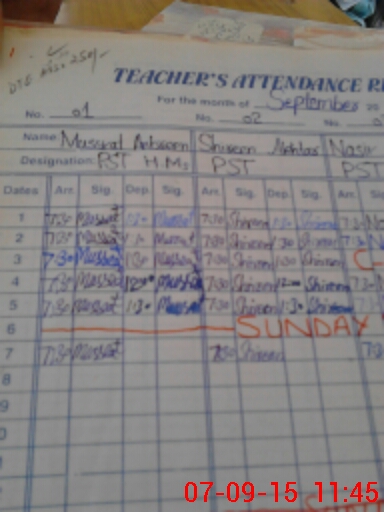 TEACHER'S ATTENDANCE RE
For the month of September 20
No. 01 No. 02
Name Mussrat Shireen Akhtar Nasir
Designation: PST H.M PST PST
Dates Arr. Sig. Dep. Sig. Arr. Sig. Dep. Sig. Arr.
1 7:30 Mussrat 1:30 Mussrat 7:30 Shireen 1:30 Shireen 7:30
2 7:30 Mussrat 1:30 Mussrat 7:30 Shireen 1:30 Shireen 7:30
3 7:30 Mussrat 1:30 Mussrat 7:30 Shireen 1:30 Shireen C-
4 7:30 Mussrat 12:00 Mussrat 7:30 Shireen 12:00 Shireen 7:30
5 7:30 Mussrat 1:30 Mussrat 7:30 Shireen 1:30 Shireen 7:30
6 SUNDAY
7 7:30 Mussrat 7:30 Shireen 7:30
8
9
0
07-09-15 11:45